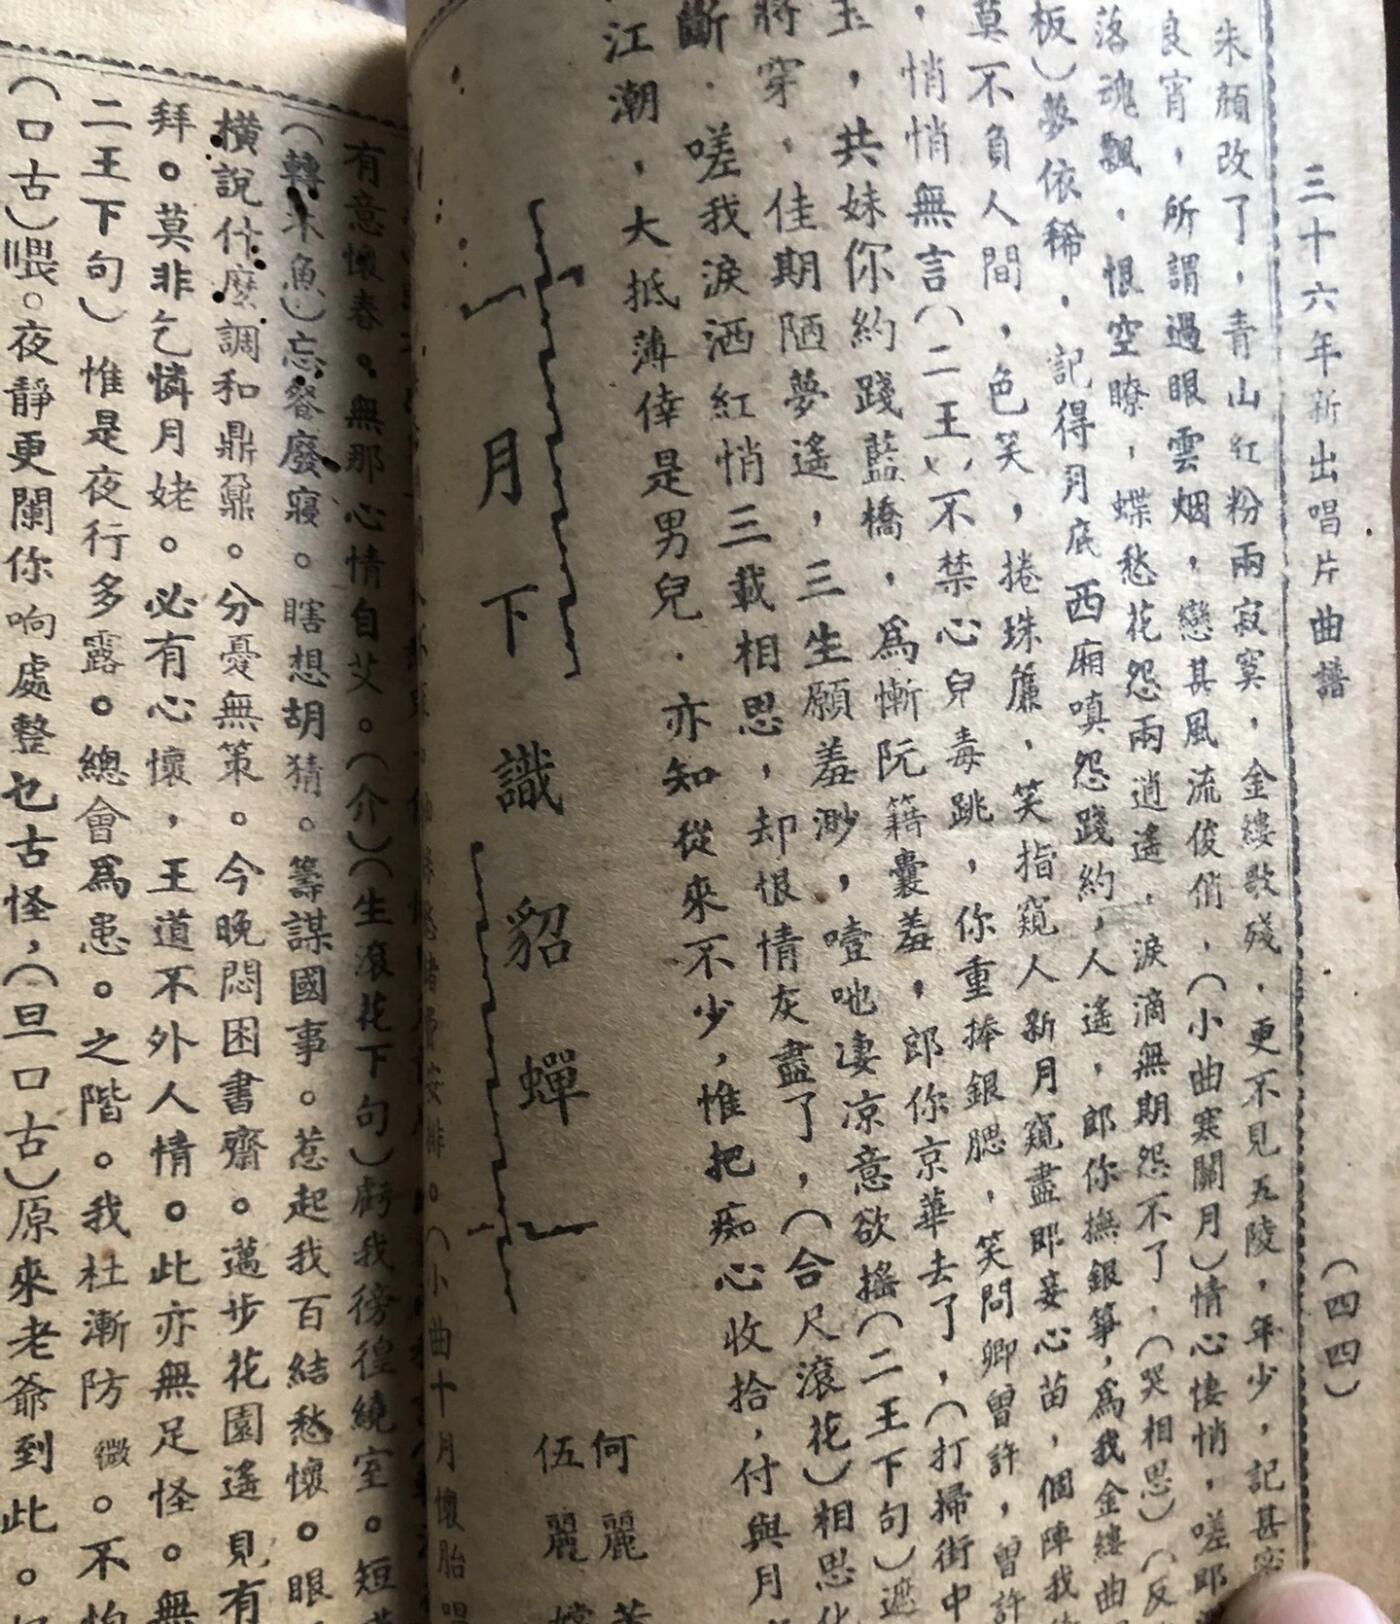 三十六年新出唱片曲譜
(四四)
朱顔改了，青山紅粉兩寂寞，金縷歌殘，更不見五陵，年少，記甚
良宵，所謂過眼雲烟，戀甚風流俊俏，(小曲寒關月)情心悽悄，嗟郎
落魂飄，恨空暸，蝶愁花怨兩逍遙，淚滴無期怨不了，(哭相思)(反
板)夢依稀，記得月底西廂嗔怨踐約，人遙，郎你撫銀箏，爲我金縷曲
莫不負人間，色笑，捲珠簾，笑指窺人新月窺盡郎妾心苗，個陣我
，悄悄無言(二王)不禁心兒毒跳，你重捧銀腮，笑問卿曾許，曾許
玉，共妹你約踐藍橋，爲慚阮籍囊羞，郎你京華去了，(打掃街中
將穿，佳期陋夢遙，三生願羞渺，噎吔凄凉意欲搖(二王下句)遮
斷，嗟我淚洒紅悄三載相思，却恨情灰盡了，(合尺滾花)相思化
江潮，大抵薄倖是男兒，亦知從來不少，惟把痴心收拾，付與月
月下識貂蟬
何麗
伍麗
(小曲十月懷胎唱
有意懷春。無那心情自艾。(介)(生滾花下句)虧我徬徨繞室。短
(轉木魚)忘餐廢寢。瞎想胡猜。籌謀國事。惹起我百結愁懷。眼
橫說什麽調和鼎鼐。分憂無策。今晚悶困書齋。邁步花園遙見有
拜。莫非乞憐月姥。必有心懷，王道不外人情。此亦無足怪。無
二王下句)惟是夜行多露。總會爲患。之階。我杜漸防微。不怕
(口古)喂。夜靜更闌你响處整乜古怪，(旦口古)原來老爺到此。